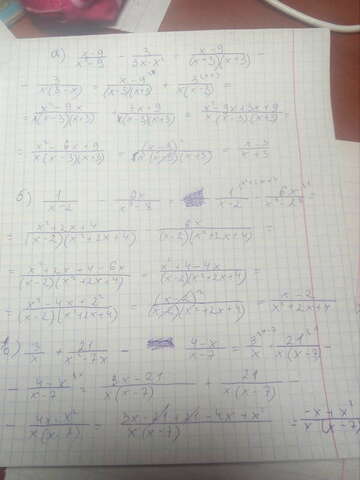 а) (x-9)/(x²-9) - 3/(3x-x²) = (x-9)/((x-3)(x+3)) -
- 3/(x(3-x)) = (x-9)/((x-3)(x+3)) + 3/(x(x-3)) =
= (x²-9x)/(x(x-3)(x+3)) + (3x+9)/(x(x-3)(x+3)) = (x²-9x+3x+9)/(x(x-3)(x+3)) =
= (x²-6x+9)/(x(x-3)(x+3)) = (x-3)/(x(x-3)(x+3)) = (x-3)/(x+3)
б) 1/(x-2) - 6x/(x³-8) = 1/(x-2) - 6x/(x³-2³) =
= (x²+2x+4)/((x-2)(x²+2x+4)) - 6x/((x-2)(x²+2x+4)) =
= (x²+2x+4-6x)/((x-2)(x²+2x+4)) = (x²+4-4x)/((x-2)(x²+2x+4)) =
= (x²-4x+2²)/((x-2)(x²+2x+4)) = (x-2)²/((x-2)(x²+2x+4)) = (x-2)/(x²+2x+4)
в) 3/x + 21/(x²-7x) - (4-x)/(x-7) = 3/x - 21/(x(x-7))
- (4-x)/(x-7) = (3x-21)/(x(x-7)) + 21/(x(x-7))
- (4x-x²)/(x(x-7)) = (3x-21+21-4x+x²)/(x(x-7)) = (-x+x²)/(x(x-7))